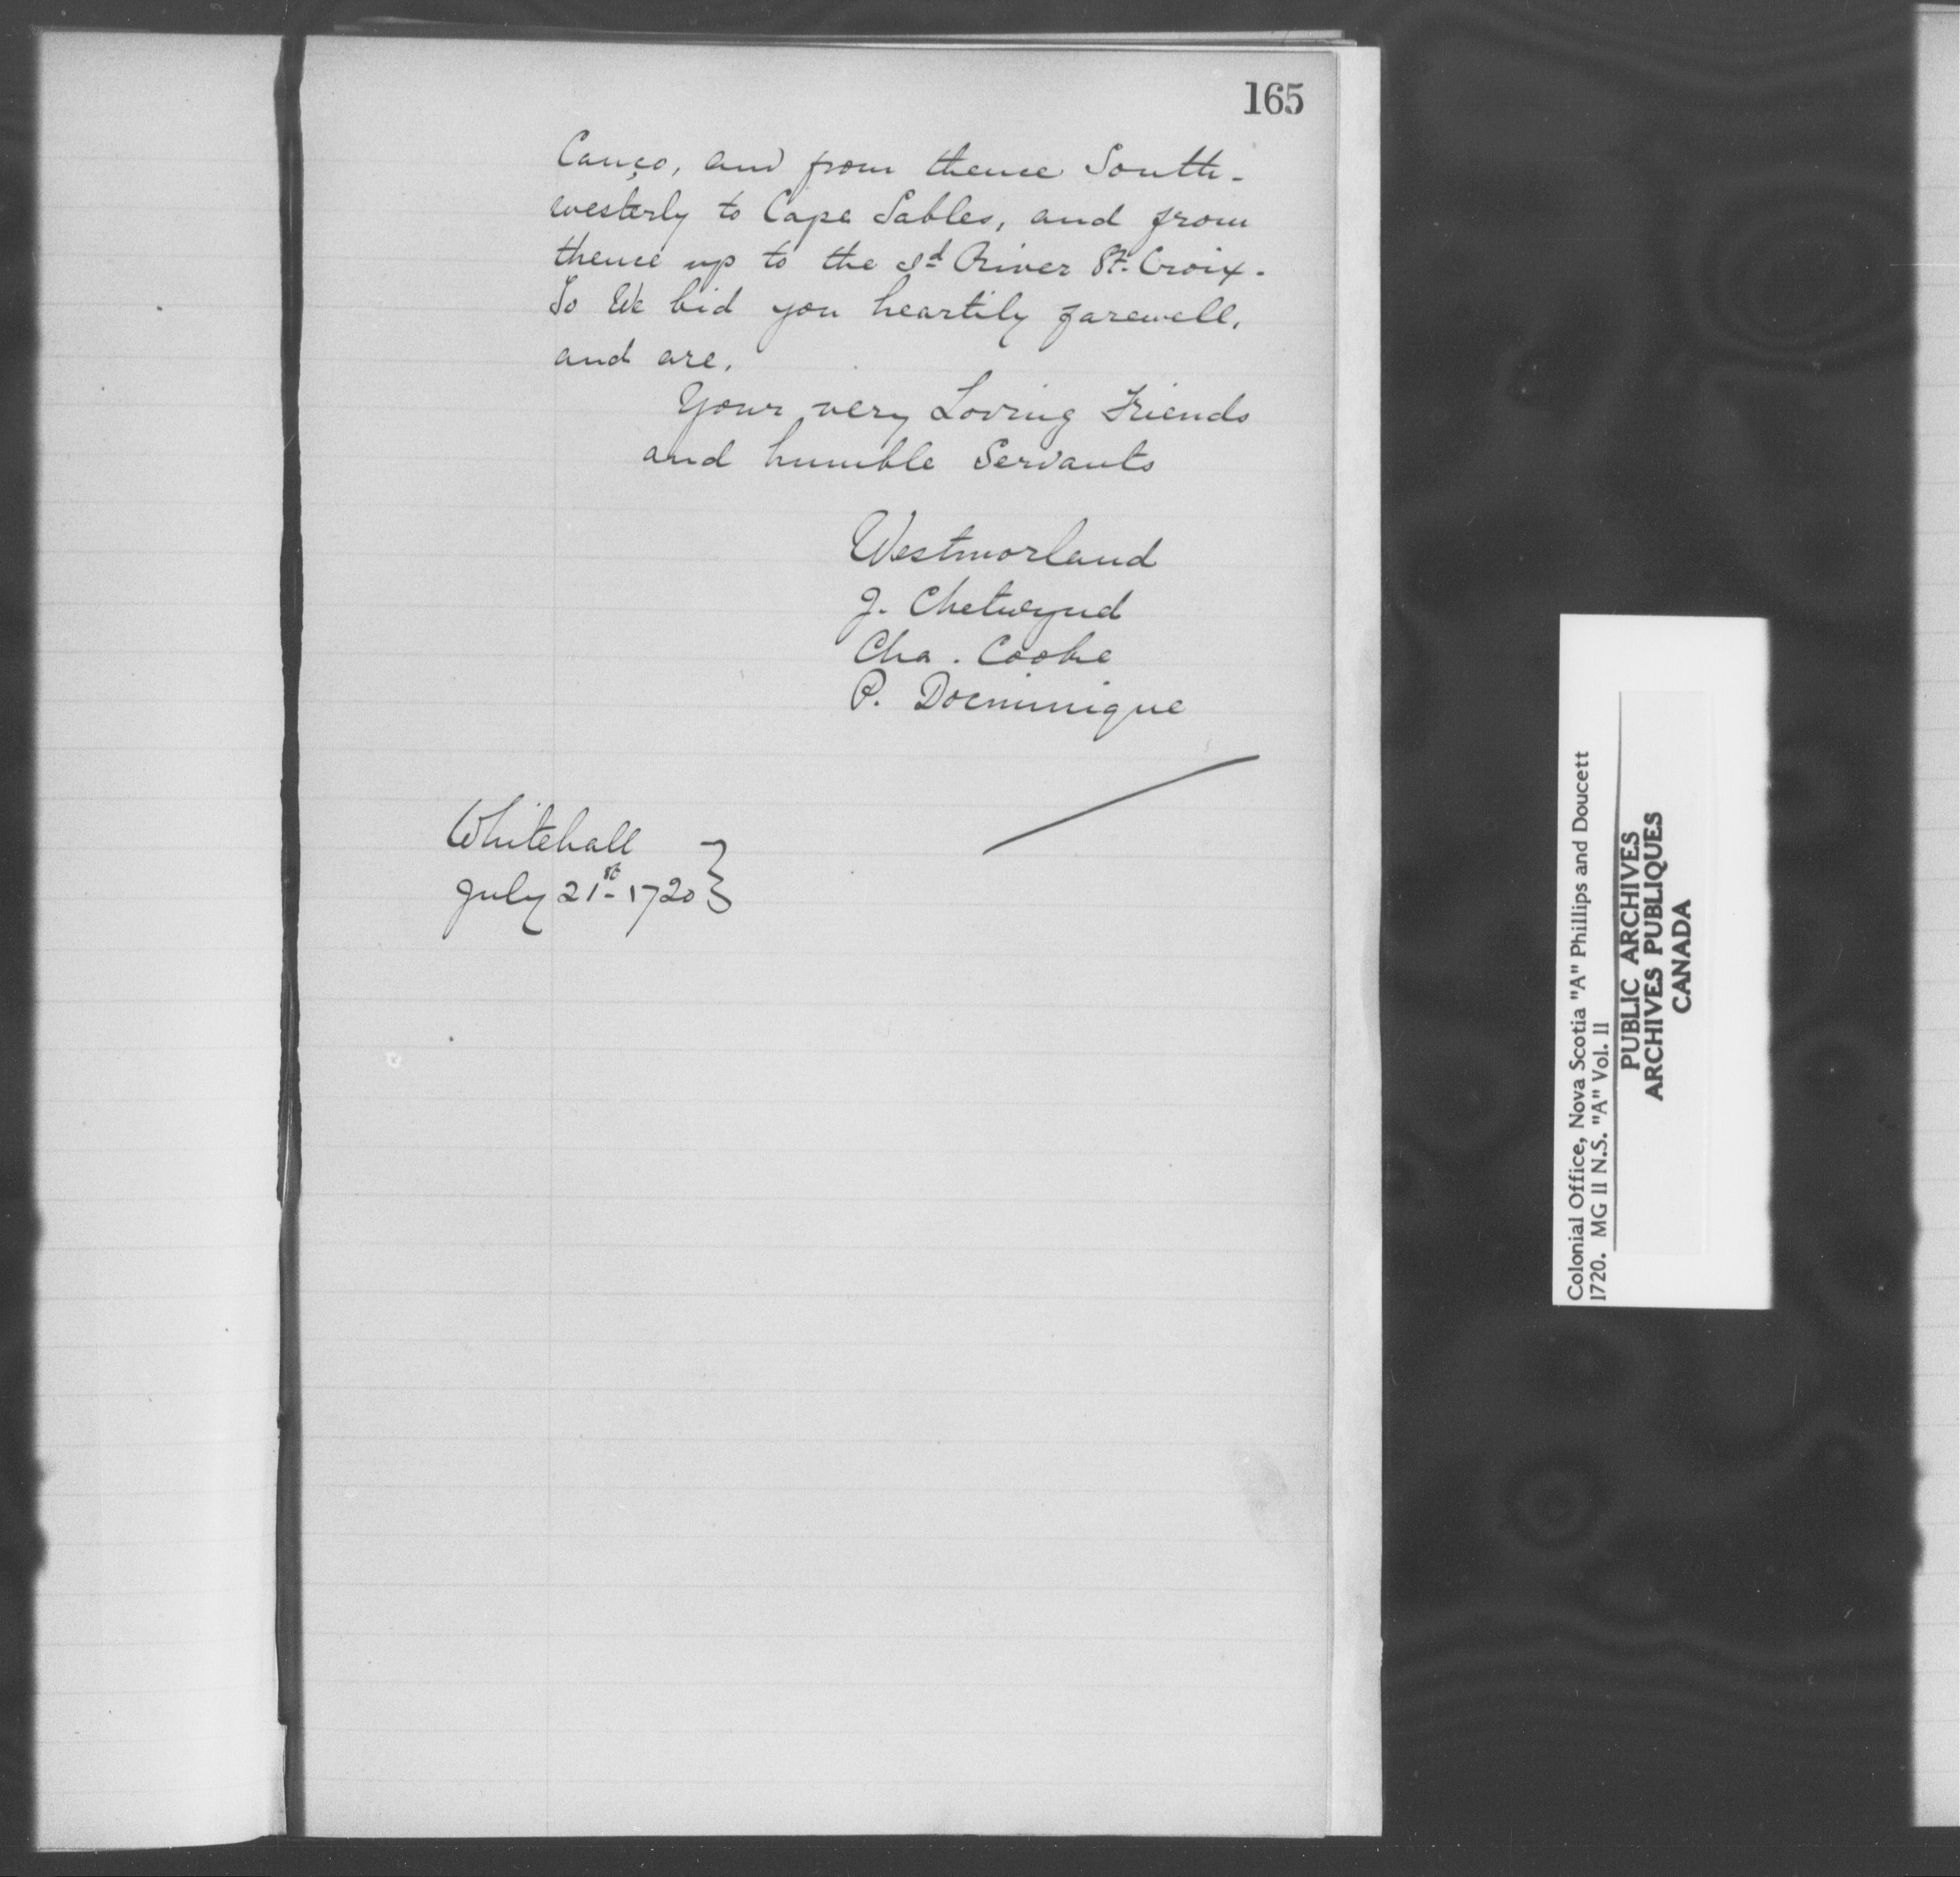 165
Canço, and from thence South-
westerly to Cape Sables, and from
thence up to the sd River St. Croix.
So We bid you heartily farewell,
and are,
Your very Loving Friends
and humble Servants
Westmorland
J. Chetwynd
Cha. Cooke
P. Docminique
Whitehall
July 21st 1720
Colonial Office, Nova Scotia "A" Phillips and Doucett
1720. MG 11 N.S. "A" Vol. 11
PUBLIC ARCHIVES
ARCHIVES PUBLIQUES
CANADA